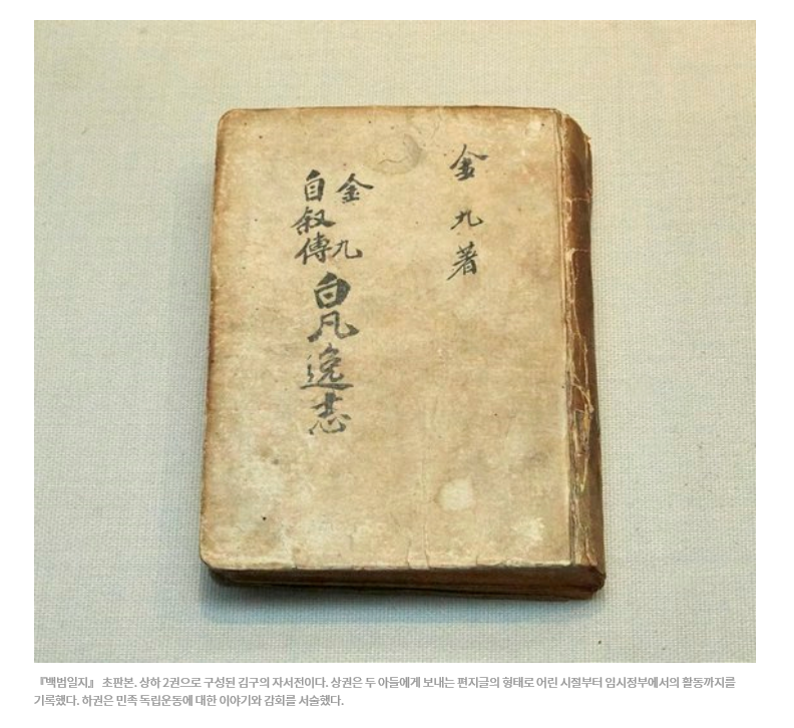 金九著
金九
自叙傳
白凡逸志
『백범일지』 초판본. 상하 2권으로 구성된 김구의 자서전이다. 상권은 두 아들에게 보내는 편지글의 형태로 어린 시절부터 임시정부에서의 활동까지를
기록했다. 하권은 민족 독립운동에 대한 이야기와 감회를 서술했다.